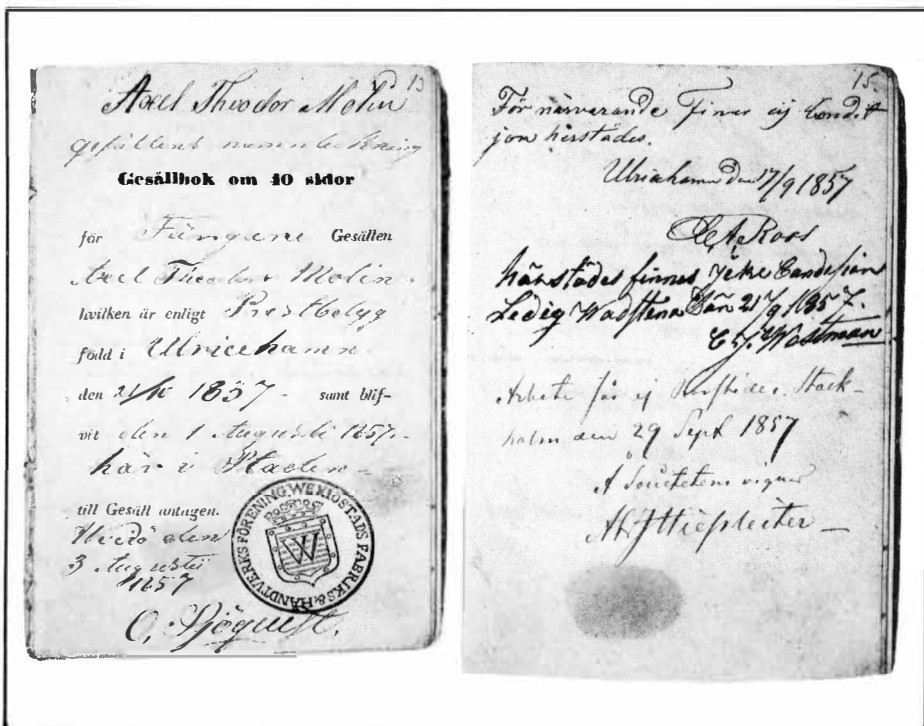 13
Axel Theodor Molin
gesällens namnteckning
Gesällbok om 40 sidor
för Gesällen
Axel Theodor Molin
hvilken är enligt Prestbetyg
född i Ulricehamn
den 21/10 1837 - samt blif-
vit den 1 Augusti 1857.
här i Staden
till Gesäll antagen.
Wexiö den
3 Augusti
1857
O. Sjöquist.
HANDTVERKS FÖRENING. WEXIO STADS FABRIKS &
W
15.
För närvarande finnes ej Condit
jon härstädes.
Ulricehamn den 17/9 1857
Roos
härstädes finnes icke Condision
Ledig Wadstena Dän 21/9 1857.
C. J. Wastman
Arbete får ej härstädes. Stock-
holm den 29 Sept 1857
Å Societetens vägnar